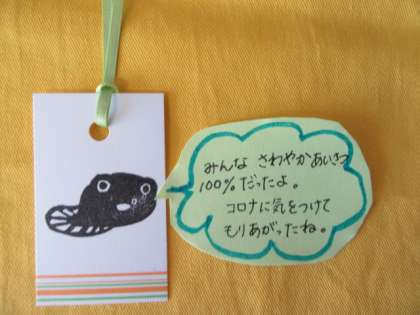 みんな さわやかあいさつ
100%だったよ。
コロナに気をつけて
もりあがったね。